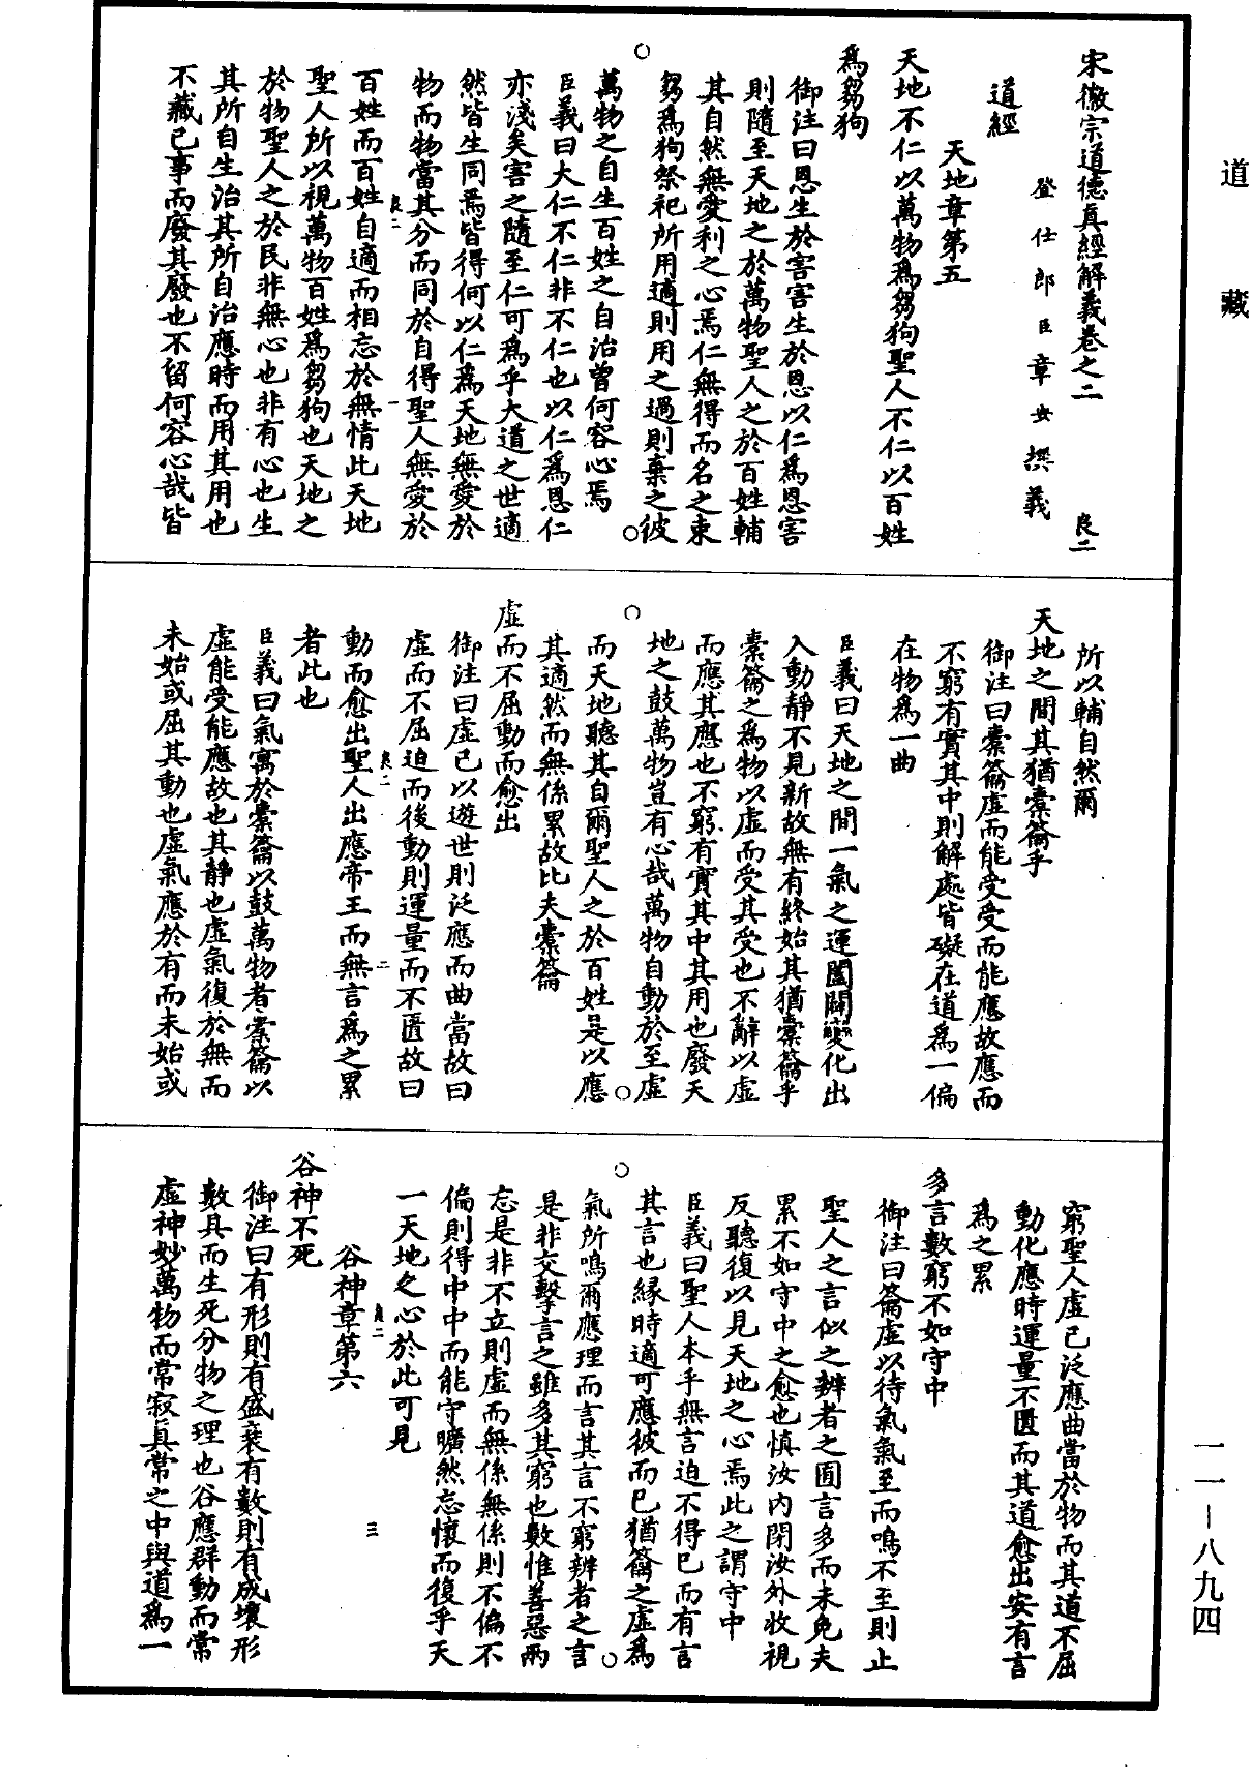 道藏
宋徽宗道德真經解義卷之二 良二
登仕郎臣章安撰義
道經
天地章第五
天地不仁以萬物為芻狗聖人不仁以百姓
為芻狗
御注曰恩生於害害生於恩以仁為恩害
則隨至天地之於萬物聖人之於百姓輔
其自然無愛利之心焉仁無得而名之束
芻為狗祭祀所用適則用之過則棄之彼
萬物之自生百姓之自治曾何容心焉
臣義曰大仁不仁非不仁也以仁為恩仁
亦淺矣害之隨至仁可為乎大道之世適
然皆生同焉皆得何以仁為天地無愛於
物而物當其分而同於自得聖人無愛於
良二 一
百姓而百姓自適而相忘於無情此天地
聖人所以視萬物百姓為芻狗也天地之
於物聖人之於民非無心也非有心也生
其所自生治其所自治應時而用其用也
不藏已事而廢其廢也不留何容心哉皆
所以輔自然爾
天地之間其猶橐籥乎
御注曰橐籥虛而能受受而能應故應而
不窮有實其中則觧處皆礙在道為一偏
在物為一曲
臣義曰天地之間一氣之運闔闢變化出
入動靜不見新故無有終始其猶橐籥乎
橐籥之為物以虛而受其受也不辭以虛
而應其應也不窮有實其中其用也廢天
地之鼓萬物豈有心哉萬物自動於至虛
而天地聽其自爾聖人之於百姓是以應
其適然而無係累故比夫橐籥
虛而不屈動而愈出
御注曰虛己以遊世則泛應而曲當故曰
虛而不屈迫而後動則運量而不匱故曰
良二 二
動而愈出聖人出應帝王而無言為之累
者此也
臣義曰氣寓於橐籥以鼓萬物者橐籥以
虛能受能應故也其靜也虛氣復於無而
未始或屈其動也虛氣應於有而未始或
窮聖人虛己泛應曲當於物而其道不屈
動化應時運量不匱而其道愈出安有言
為之累
多言數窮不如守中
御注曰籥虛以待氣氣至而鳴不至則止
聖人之言似之辨者之囿言多而未免夫
累不如守中之愈也慎汝內閉汝外收視
反聽復以見天地之心焉此之謂守中
臣義曰聖人本乎無言迫不得已而有言
其言也緣時適可應彼而已猶籥之虛為
氣所鳴爾應理而言其言不窮辨者之言
是非交擊言之雖多其窮也數惟善惡兩
忘是非不立則虛而無係無係則不偏不
偏則得中中而能守曠然忘懷而復乎天
一天地之心於此可見
良二 三
谷神章第六
谷神不死
御注曰有形則有盛衰有數則有成壞形
數具而生死分物之理也谷應群動而常
虛神妙萬物而常寂真常之中與道為一
一一-八九四